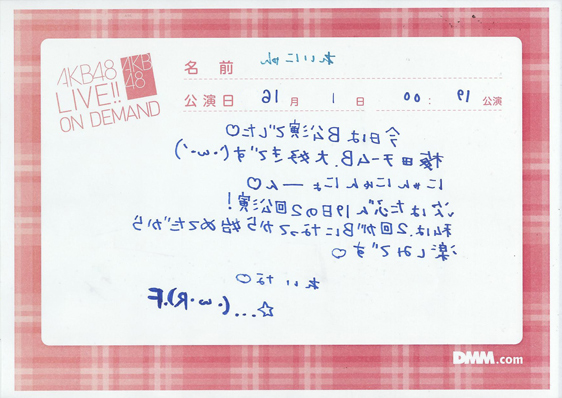 AKB48
LIVE!!
ON DEMAND
AKB
48
名前 れいにゃん
公演日 16 月 1 日 00 : 19 公演
今日はB公演でした♡
梅田チームB、大好きです(・ω・`)
にゃんにゃんにょーーん♡
次はたぶん19日の2回公演!
私は、2回がBになってから始めてだから
楽しみです♡
れいな♡
F.(R・ω・)...☆
DMM.com